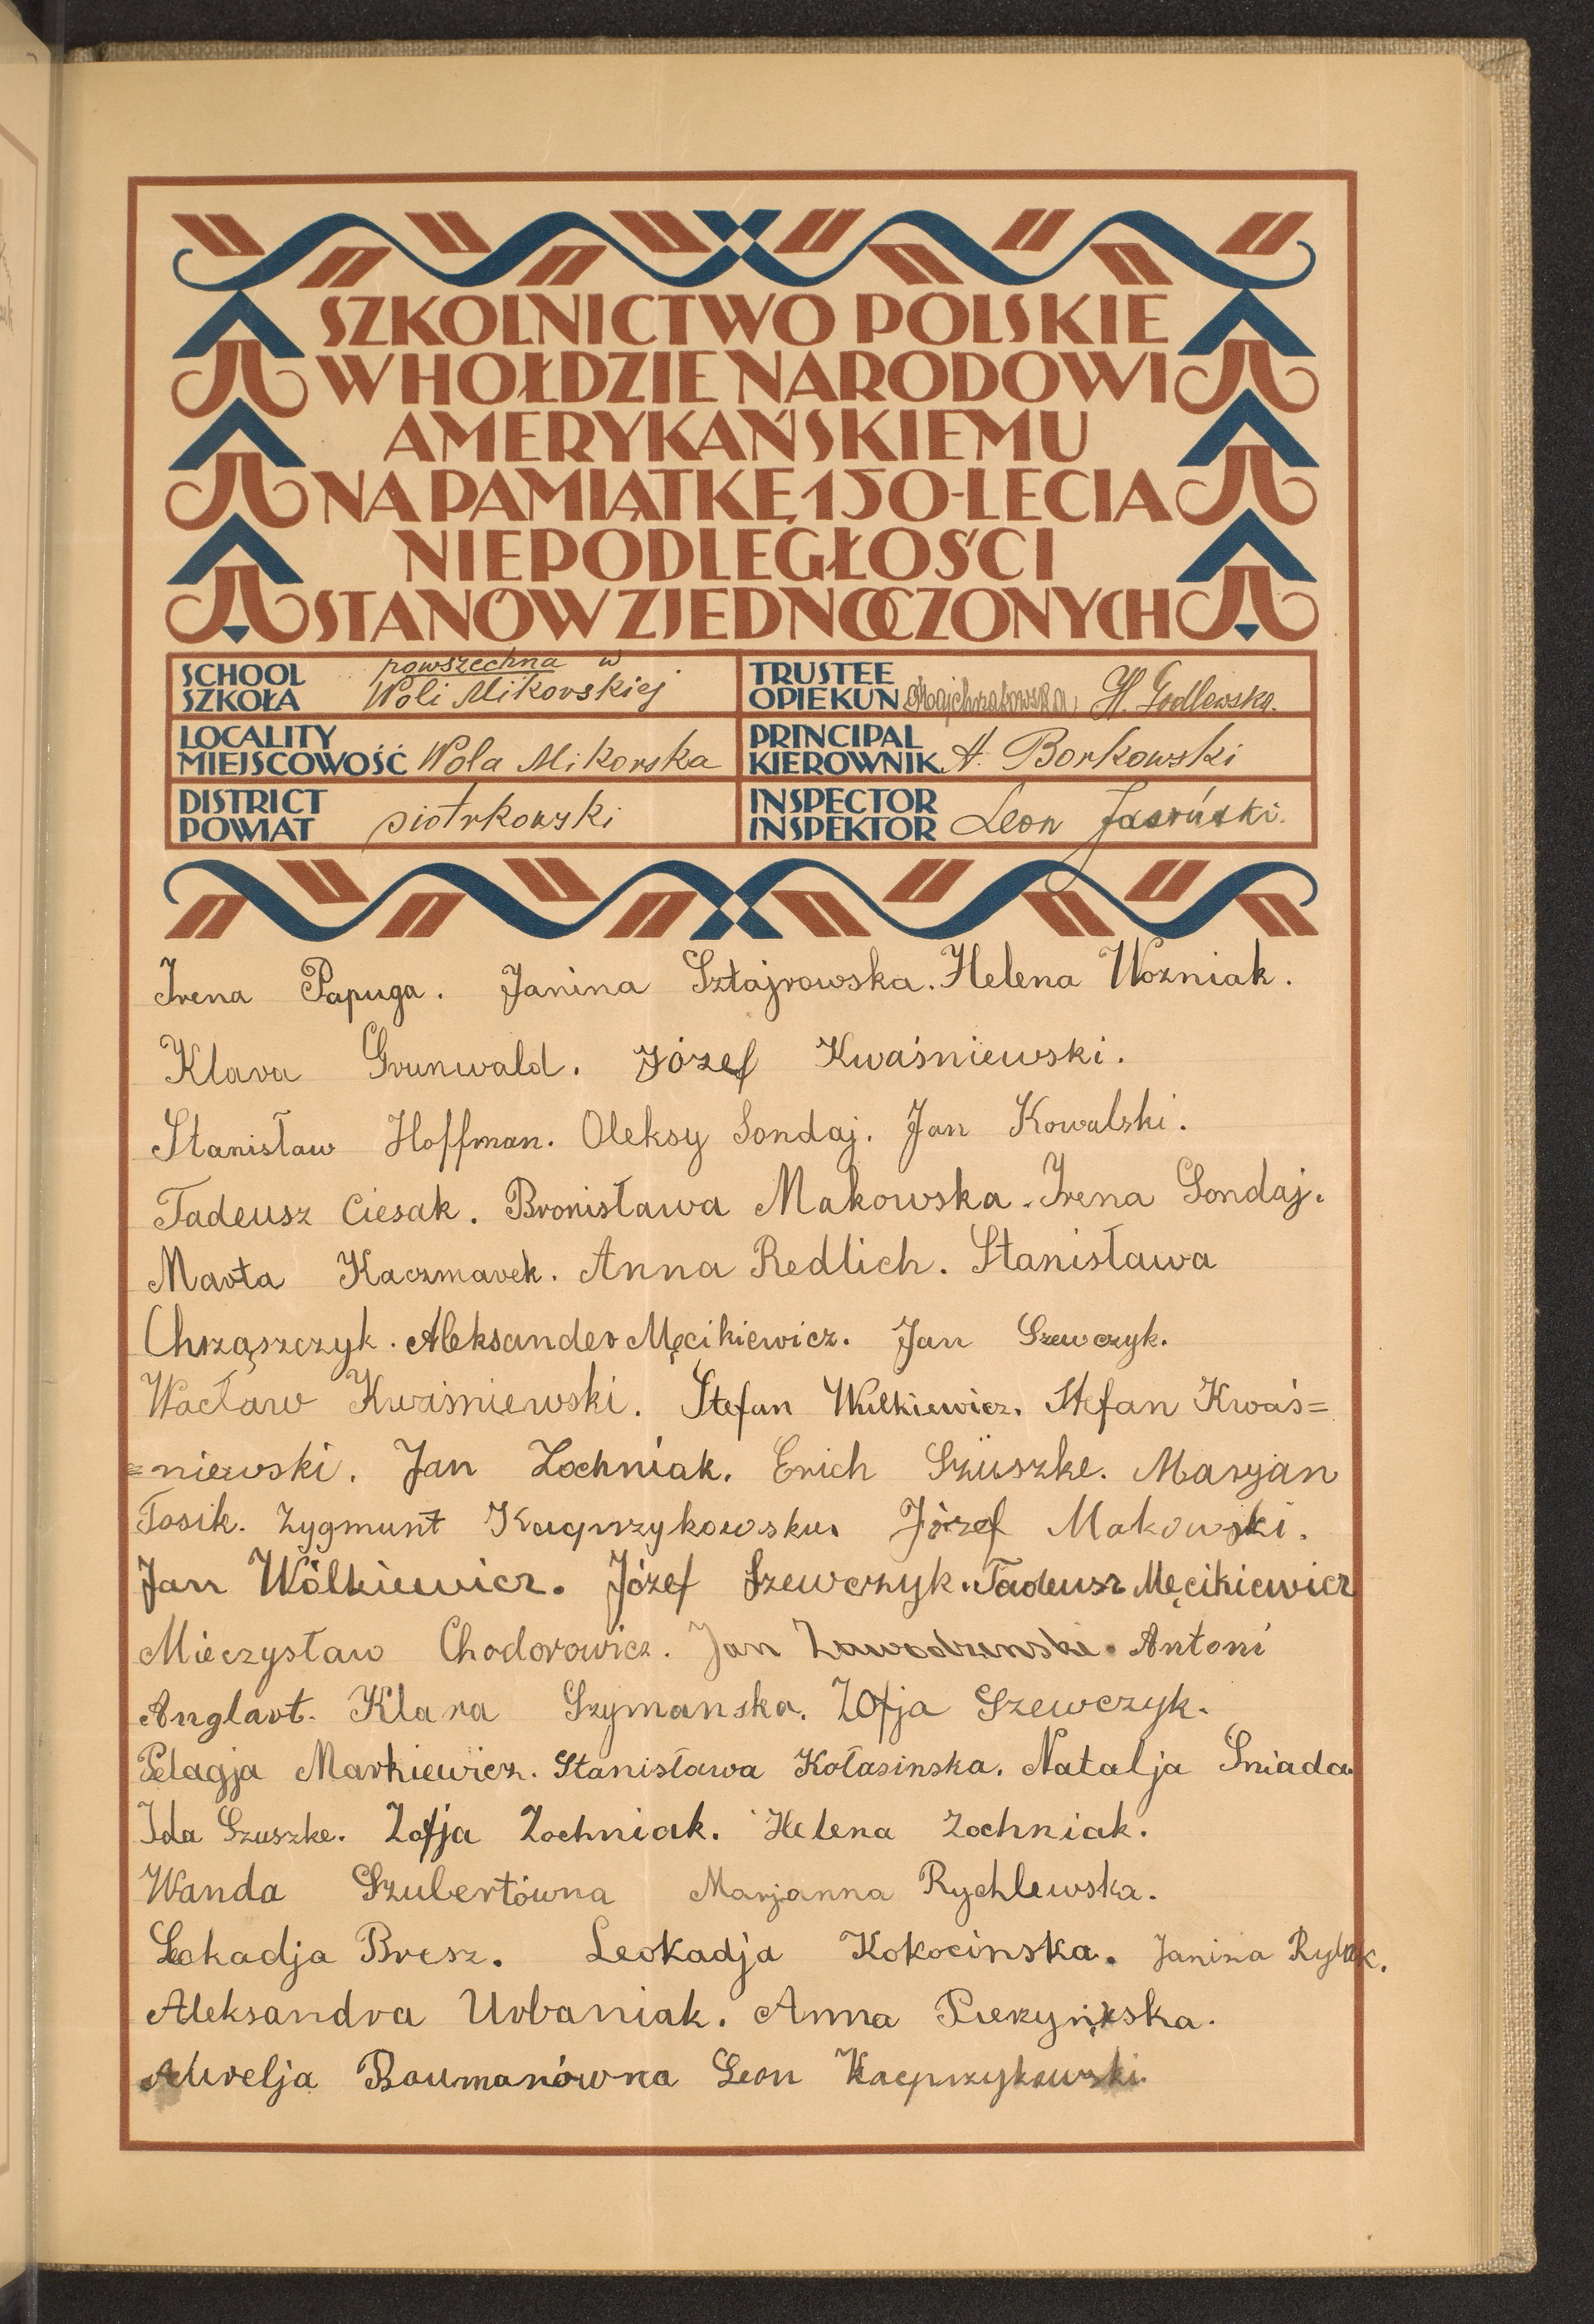 SZKOLNICTWO POLSKIE
W HOŁDZIE NARODOWI
AMERYKAŃSKIEMU
NA PAMIĄTKĘ 150-LECIA
NIEPODLEGŁOŚCI
STANÓW ZJEDNOCZONYCH
SCHOOL SZKOŁA powszechna w Woli Mikorskiej
TRUSTEE OPIEKUN H. Godlewska.
LOCALITY MIEJSCOWOŚĆ Wola Mikorska
PRINCIPAL KIEROWNIK A. Borkowski
DISTRICT POWIAT piotrkowski
INSPECTOR INSPEKTOR Leon
Irena Papuga. Janina Sztajrowska. Helena Wozniak.
Klara Grunwald. Józef Kwaśniewski.
Stanisław Hoffman. Oleksy Sondaj. Jan Kowalski.
Tadeusz Ciesak. Bronisława Makowska. Irena Sondaj.
Marta Kaczmarek. Anna Redlich. Stanisława
Chrząszczyk. Aleksander Męcikiewicz. Jan Szewczyk.
Wacław Kwaśniewski. Stefan Wulkiewicz. Stefan Kwaś=
=niewski. Jan Zochniak. Erich Szuszke. Marjan
Tosik. Zygmunt Józef Makowski.
Jan Wólkiewicz. Józef Szewczyk. Tadeusz Męcikiewicz
Mieczysław Chodorowicz. Jan Zawodzenski. Antoni
Anglart. Klara Szymanska. Zofja Szewczyk.
Pelagja Markiewicz. Stanisława Kołasinska. Natalja Sniada
Ida Szuszke. Zofja Zochniak. Helena Zochniak.
Wanda Szubertówna Marjanna Rychlewska.
Leokadja Bresz. Leokadja Kokocinska. Janina Rybak.
Aleksandra Urbaniak. Anna
Aurelja Baumanówna Leon Kacprzykowski.